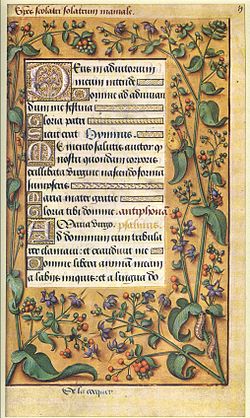 Spes scolatri solatrum maniale.
Deus in adiutorium
meum intende
Domine ad adiuvan
dum me festina
Gloria patri
Sicut erat Hymnus.
Memento salutis auctor q
nostri quondam corporis
ex illibata virgine nascendo forma
sumpseris
Maria mater gratie
Gloria tibi domine antiphona
Maria virgo. psalmus.
Ad dominum cum tribula
rer clamavi: et exaudivit me
Domine libera animam meam
a labiis iniquis: et a lingua do